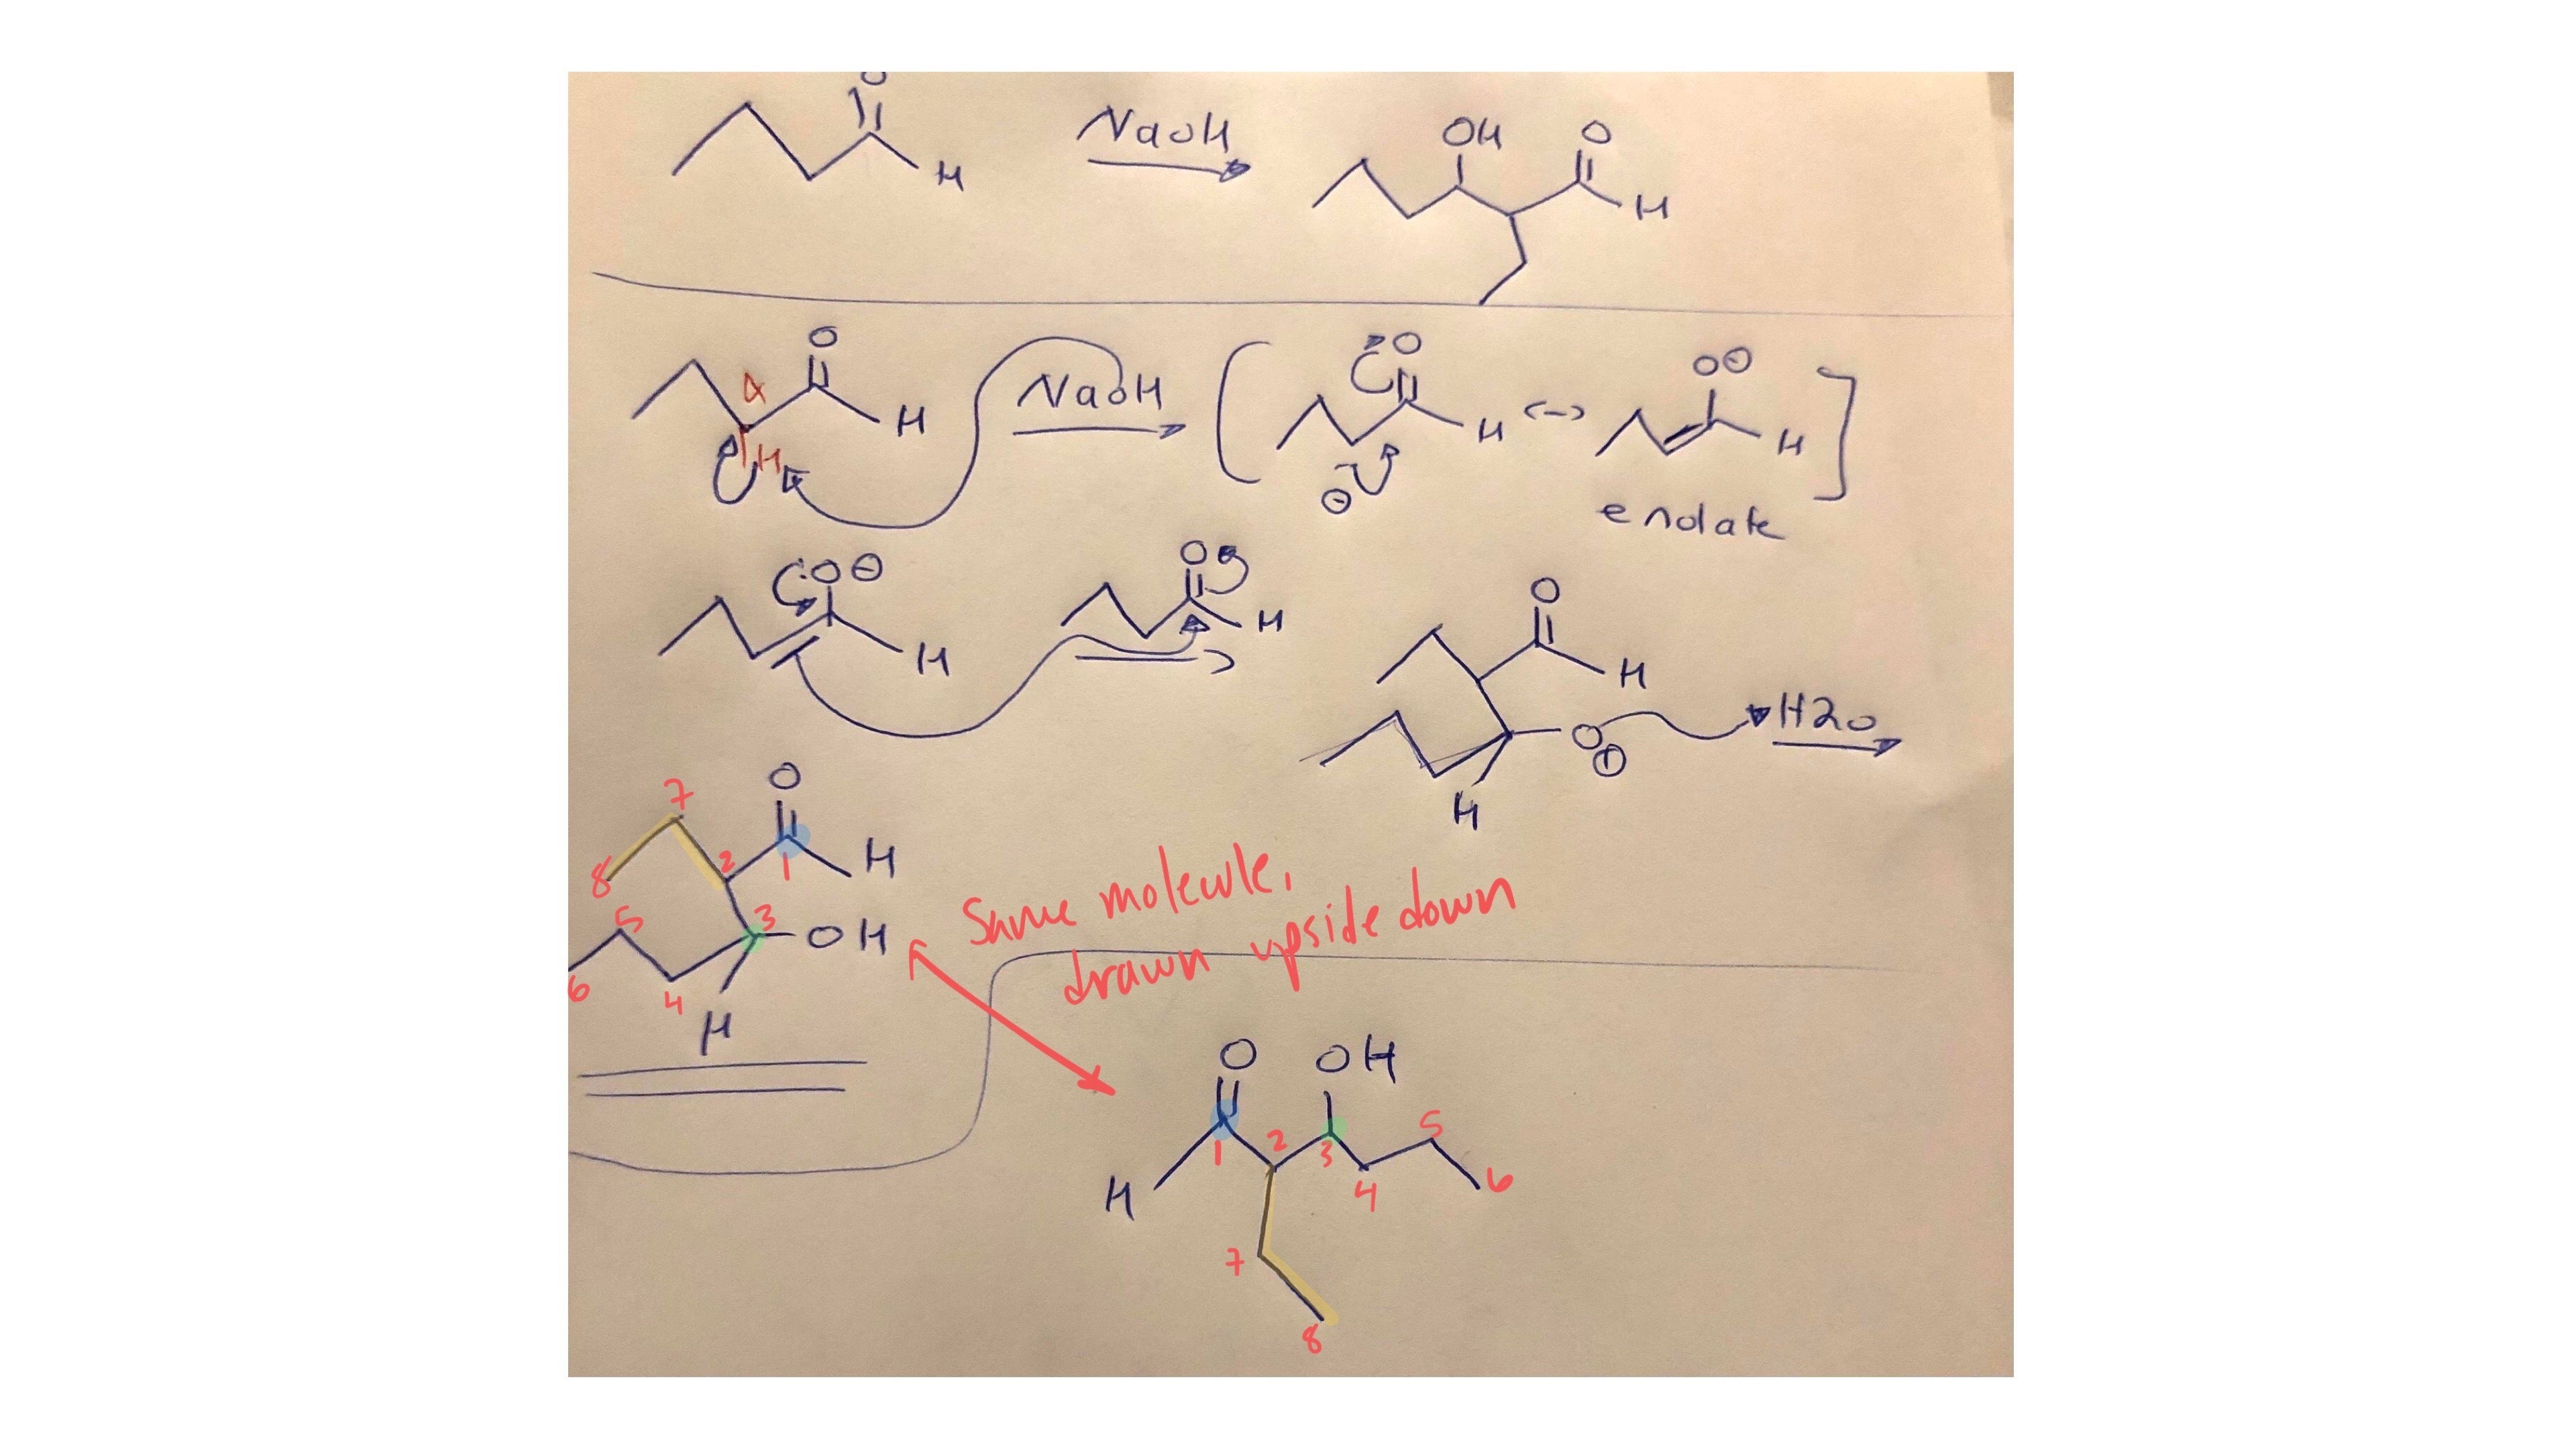 O
H
NaOH
OH
O
H
α
H
O
H
NaOH
O
H
⊖
<->
O⊖
H
enolate
O⊖
H
O
H
O
H
O
⊖
H
H2O
O
H
OH
H
1
2
3
4
5
6
7
8
Same molecule,
drawn upside down
O
OH
H
1
2
3
4
5
6
7
8